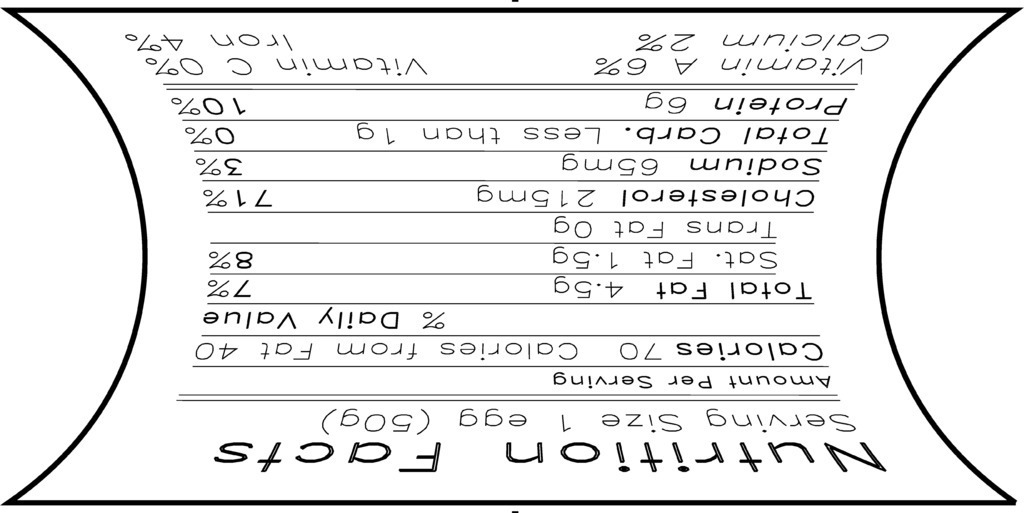 Nutrition Facts
Serving Size 1 egg (50g)
Amount Per Serving
Calories 70 Calories from Fat 40
% Daily Value
Total Fat 4.5g 7%
Sat. Fat 1.5g 8%
Trans Fat 0g
Cholesterol 215mg 71%
Sodium 65mg 3%
Total Carb. Less than 1g 0%
Protein 6g 10%
Vitamin A 6% Vitamin C 0%
Calcium 2% Iron 4%